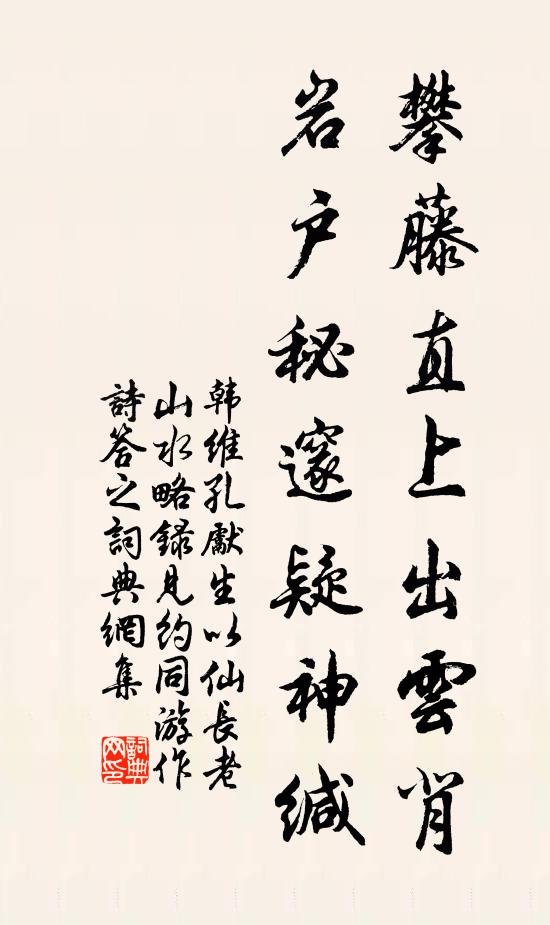 攀藤直上出雲背
岩户秘邃疑神缄
韩维孔獻生以仙長老
山水略録見約同游作
詩答之詞典網集
詞典網印